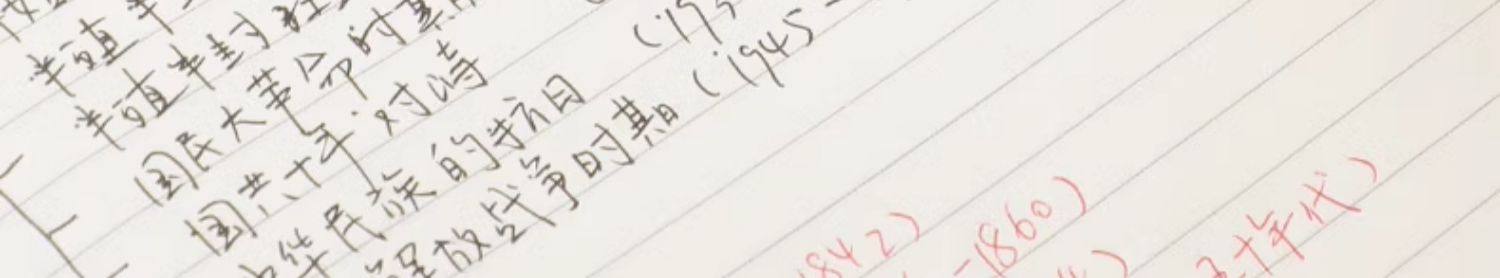 半殖半
半殖半封
国民大革命时期
国共十年对峙 (193
中华民族的抗日 (1945-
解放战争时期
842)
-1860)
十年代)